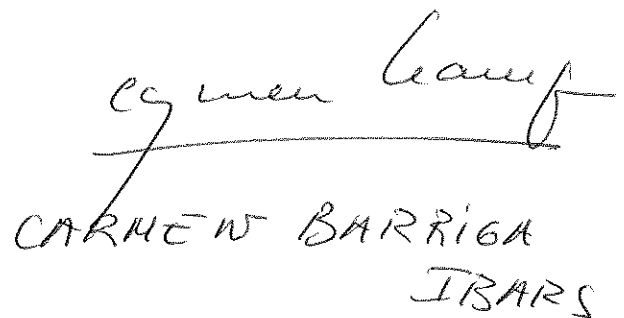 CARMEN BARRIGA
IBARS